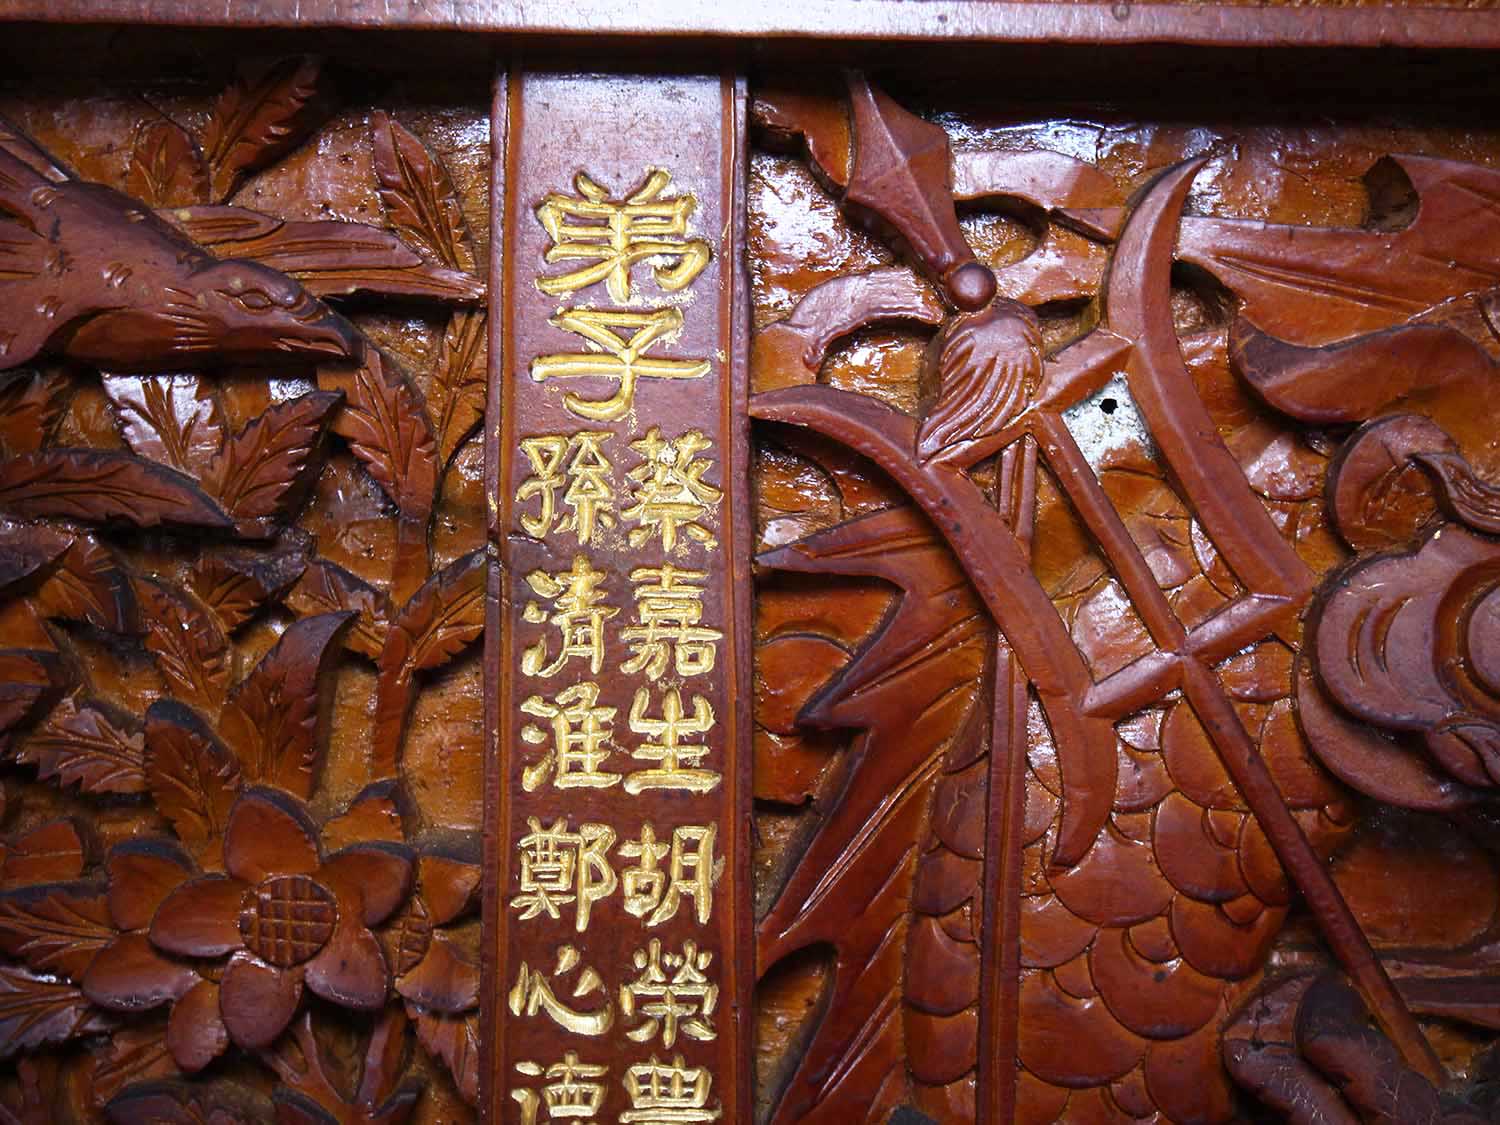 弟子
蔡嘉生 胡榮
孫清淮 鄭心德